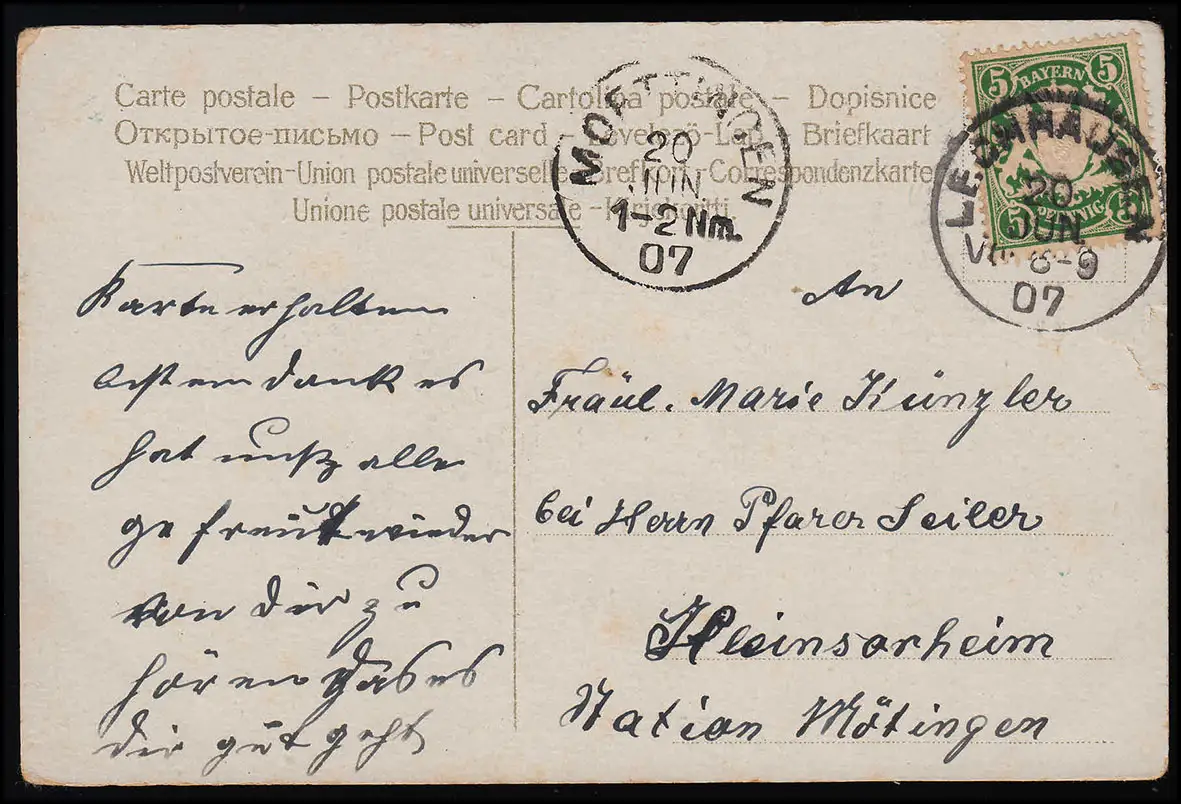 Carte postale – Postkarte – Cartolina postale – Dopisnice
Открытое-письмо – Post card – Levelező-Lap – Briefkaart
Weltpostverein-Union postale universelle – Brefkort – Correspondenzkarte
Unione postale universale – Karjakortti
MOETTINGEN
20
JUN
1-2 Nm.
07
5 BAYERN 5
5 PFENNIG 5
LECHHAUSEN
20.
JUN
Vo. 8-9
07
Karte erhalten
dank es
hat unß alle
gefreut wieder
von dir zu
hören das es
dir gut geht
An
Fräul. Marie Künzler
bei Herrn Pfarer Seiler
Kleinsorheim
Station Mötingen